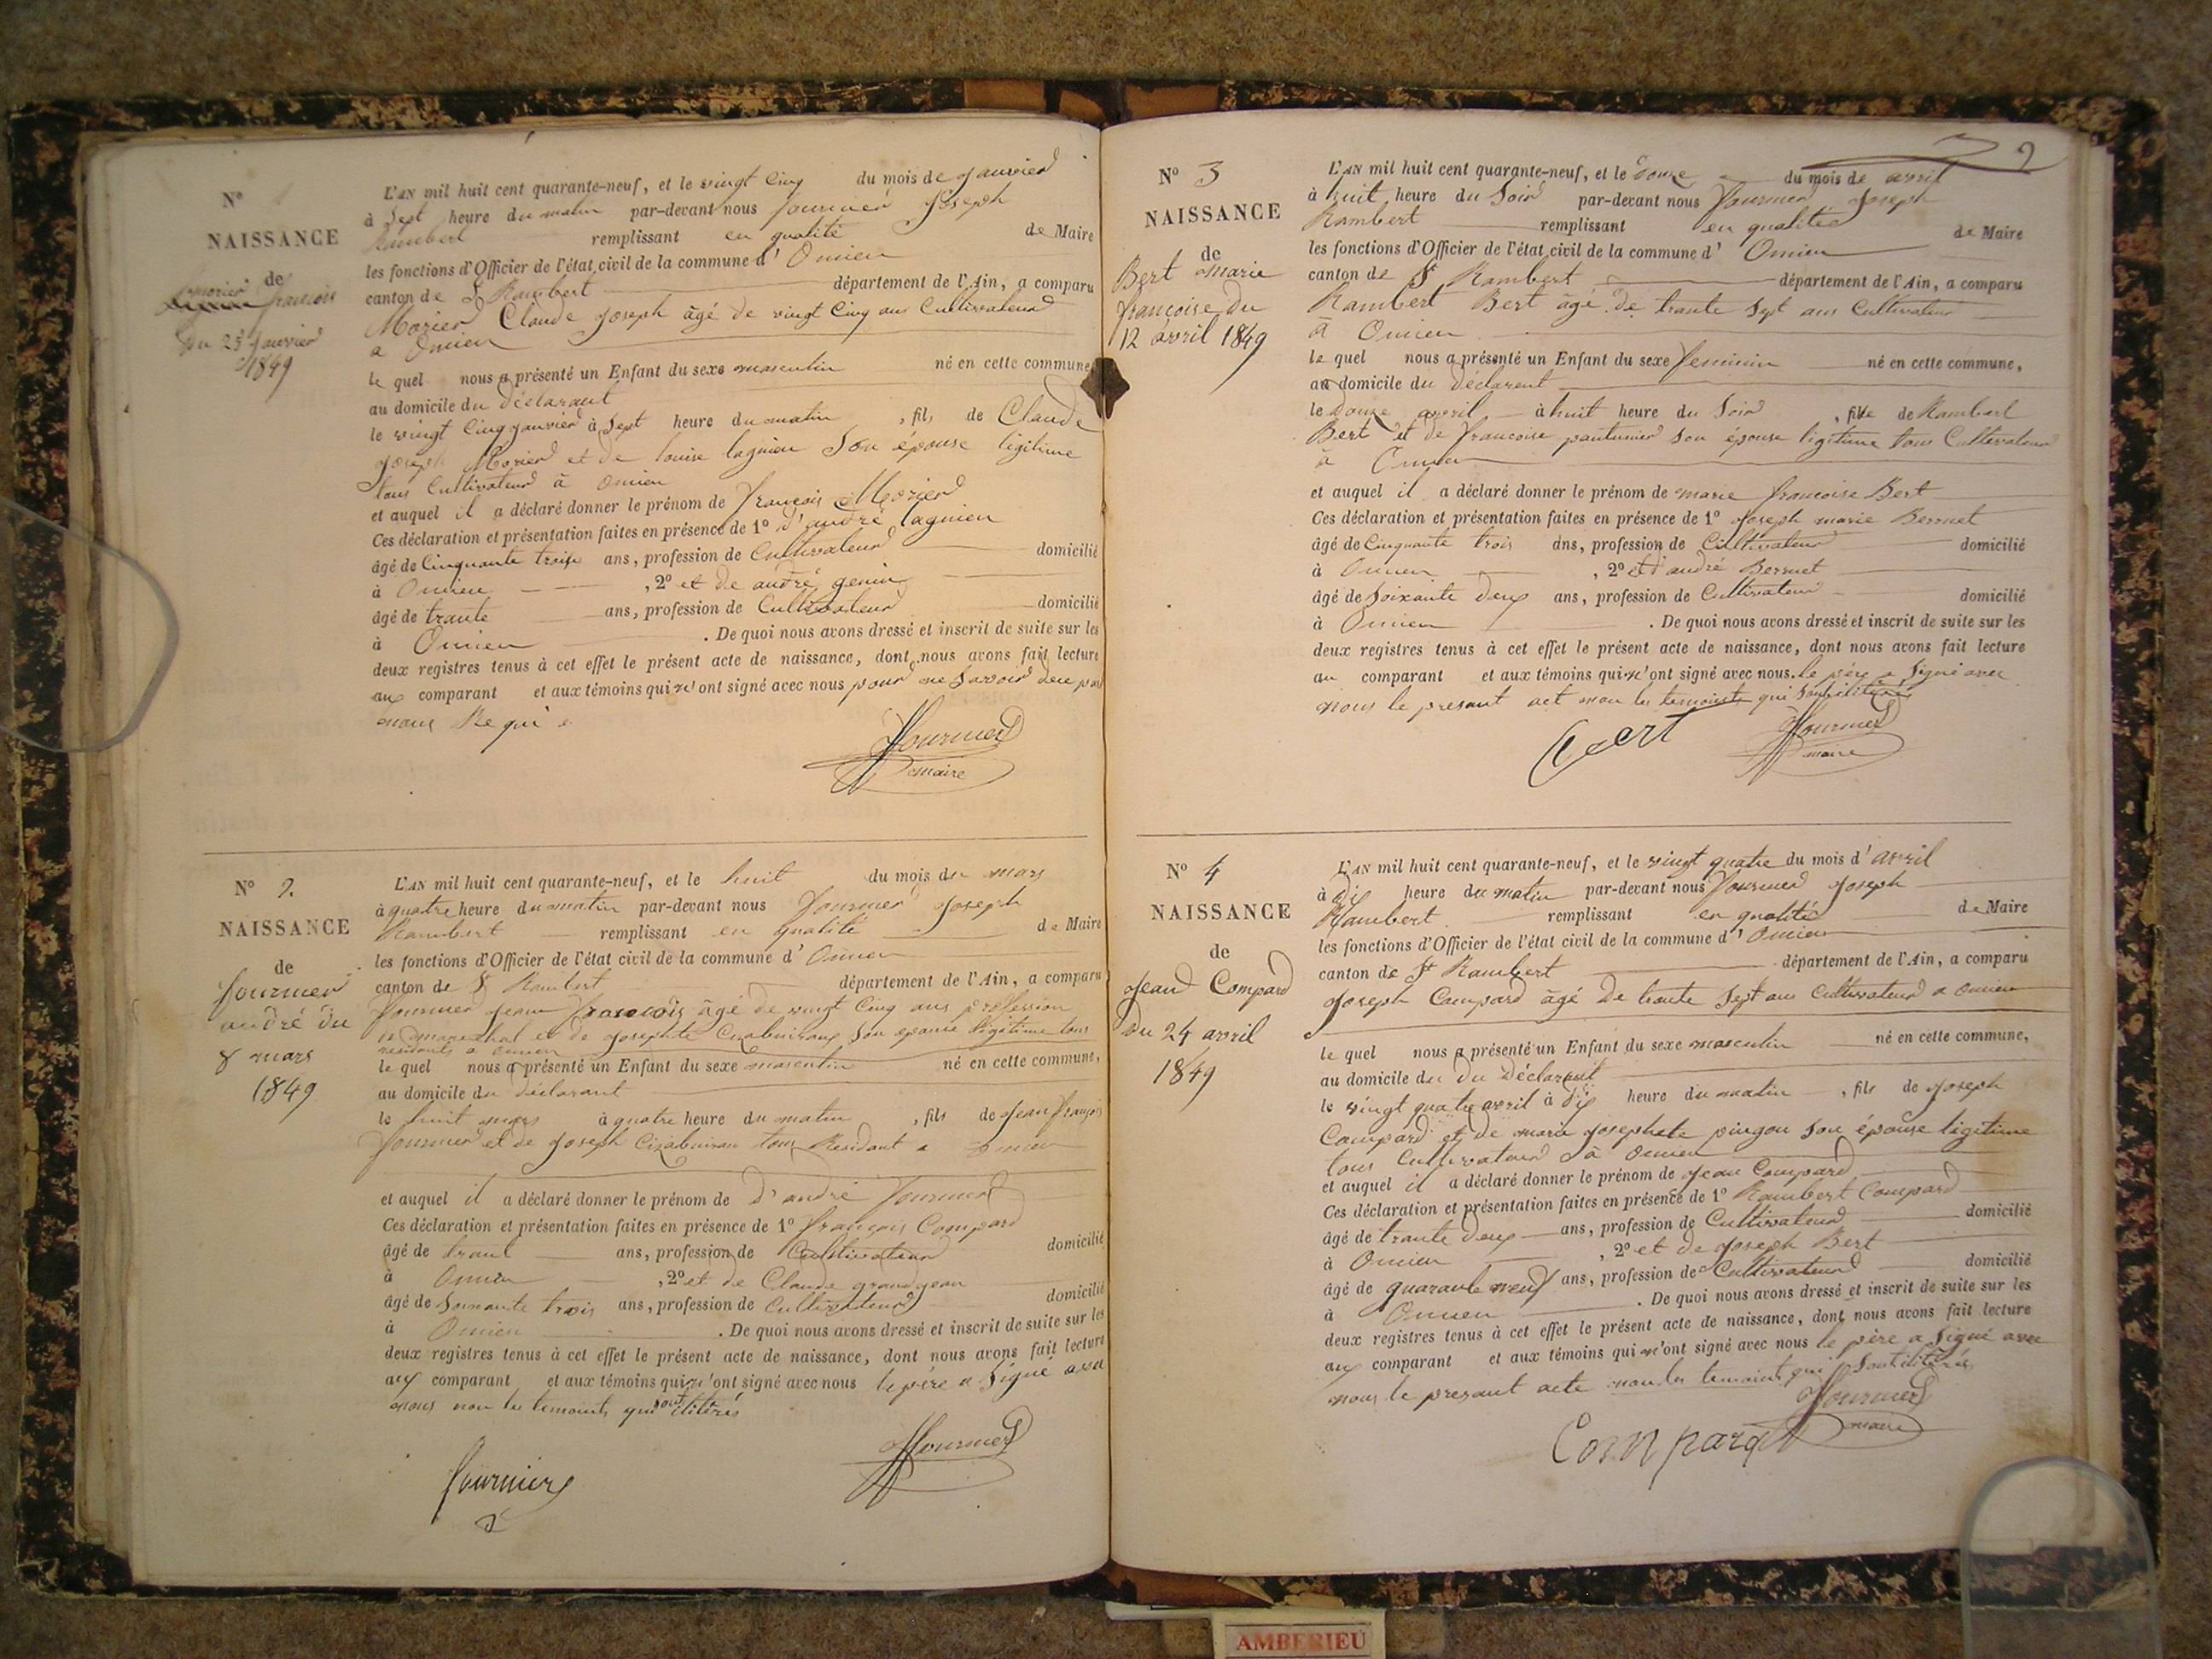 N°
NAISSANCE
de
morier françois
du 25 janvier
1849
L'AN mil huit cent quarante-neuf, et le vingt cinq du mois de janvier
à sept heure du matin par-devant nous fournier Joseph
Rambert remplissant en qualité de Maire
les fonctions d'Officier de l'état civil de la commune d' Oncieu
canton de St Rambert département de l'Ain, a comparu
Morier Claude Joseph âgé de vingt cinq ans Cultivateur
a Oncieu
le quel nous a présenté un Enfant du sexe masculin né en cette commune,
au domicile du déclarant
le vingt cinq janvier à sept heure du matin , fils de Claude
joseph Morier et de louise lagnieu son épouse légitime
tous Cultivateur à Oncieu
et auquel il a déclaré donner le prénom de françois Morier
Ces déclaration et présentation faites en présence de 1° d'andré lagnieu
âgé de Cinquante trois ans, profession de Cultivateur domicilié
à Oncieu , 2° et de andré genin
âgé de trante ans, profession de Cultivateur domicilié
à Oncieu . De quoi nous avons dressé et inscrit de suite sur les
deux registres tenus à cet effet le présent acte de naissance, dont nous avons fait lecture
aux comparant et aux témoins qui n'ont signé avec nous pour ne savoir de ce par
nous Requi
fournier
maire
N° 2.
NAISSANCE
de
fournier
andré du
8 mars
1849
L'AN mil huit cent quarante-neuf, et le huit du mois de mars
à quatre heure du matin par-devant nous fournier Joseph
Rambert remplissant en qualité de Maire
les fonctions d'Officier de l'état civil de la commune d' Oncieu
canton de St Rambert département de l'Ain, a comparu
fournier jean françois âgé de vingt cinq ans proféssion
de marechal et de Josephte son épouse légitime tous
residants a oncieu
le quel nous a présenté un Enfant du sexe masculin né en cette commune,
au domicile du déclarant
le huit mars à quatre heure du matin , fils de jean françois
fournier et de Joseph tous Residant a oncieu
et auquel il a déclaré donner le prénom de d'andré fournier
Ces déclaration et présentation faites en présence de 1° françois Compard
âgé de trant ans, profession de Cultivateur domicilié
à Oncieu , 2° et de Claude grandjean
âgé de Soixante trois ans, profession de Cultivateur domicilié
à Oncieu . De quoi nous avons dressé et inscrit de suite sur les
deux registres tenus à cet effet le présent acte de naissance, dont nous avons fait lecture
aux comparant et aux témoins qui n'ont signé avec nous le père a signé avec
nous non les temoints qui sont ilitérés
fournier
fournier
2
N° 3
NAISSANCE
de
Bert Marie
françoise du
12 avril 1849
L'AN mil huit cent quarante-neuf, et le douze du mois de avril
à huit heure du Soir par-devant nous fournier Joseph
Rambert remplissant en qualité de Maire
les fonctions d'Officier de l'état civil de la commune d' Oncieu
canton de St Rambert département de l'Ain, a comparu
Rambert Bert âgé de trante sept ans Cultivateur
à Oncieu
le quel nous a présenté un Enfant du sexe feminin né en cette commune,
au domicile du déclarent
le douze avril à huit heure du Soir , fille de Rambert
Bert et de francoise pantunier son épouse légitime tous Cultivateur
à Oncieu
et auquel il a déclaré donner le prénom de marie francoise Bert
Ces déclaration et présentation faites en présence de 1° Joseph marie Berruet
âgé de Cinquante trois ans, profession de Cultivateur domicilié
à Oncieu , 2° et d'andré Berruet
âgé de Soixante deux ans, profession de Cultivateur domicilié
à Oncieu . De quoi nous avons dressé et inscrit de suite sur les
deux registres tenus à cet effet le présent acte de naissance, dont nous avons fait lecture
au comparant et aux témoins qui n'ont signé avec nous. le père a signé avec
nous le presant act non les temoints qui sont ilitérés
Bert
fournier
maire
N° 4
NAISSANCE
de
Jean Compard
du 24 avril
1849
L'AN mil huit cent quarante-neuf, et le vingt quatre du mois d' avril
à dix heure du matin par-devant nous fournier Joseph
Rambert remplissant en qualité de Maire
les fonctions d'Officier de l'état civil de la commune d' Oncieu
canton de St Rambert département de l'Ain, a comparu
Joseph Compard âgé de trante sept ans Cultivateur a oncieu
le quel nous a présenté un Enfant du sexe masculin né en cette commune,
au domicile du du déclarent
le vingt quatre avril à dix heure du matin , fils de Joseph
Compard et de marie josephete pingon son épouse légitime
tous Cultivateur à oncieu
et auquel il a déclaré donner le prénom de Jean Compard
Ces déclaration et présentation faites en présence de 1° Rambert Compard
âgé de trante deux ans, profession de Cultivateur domicilié
à Oncieu , 2° et de Joseph Bert
âgé de quarante neuf ans, profession de Cultivateur domicilié
à Oncieu . De quoi nous avons dressé et inscrit de suite sur les
deux registres tenus à cet effet le présent acte de naissance, dont nous avons fait lecture
aux comparant et aux témoins qui n'ont signé avec nous le père a signé avec
nous le presant acte non les temoints qui sont ilitérés
fournier
maire
Comparat
AMBERIEU